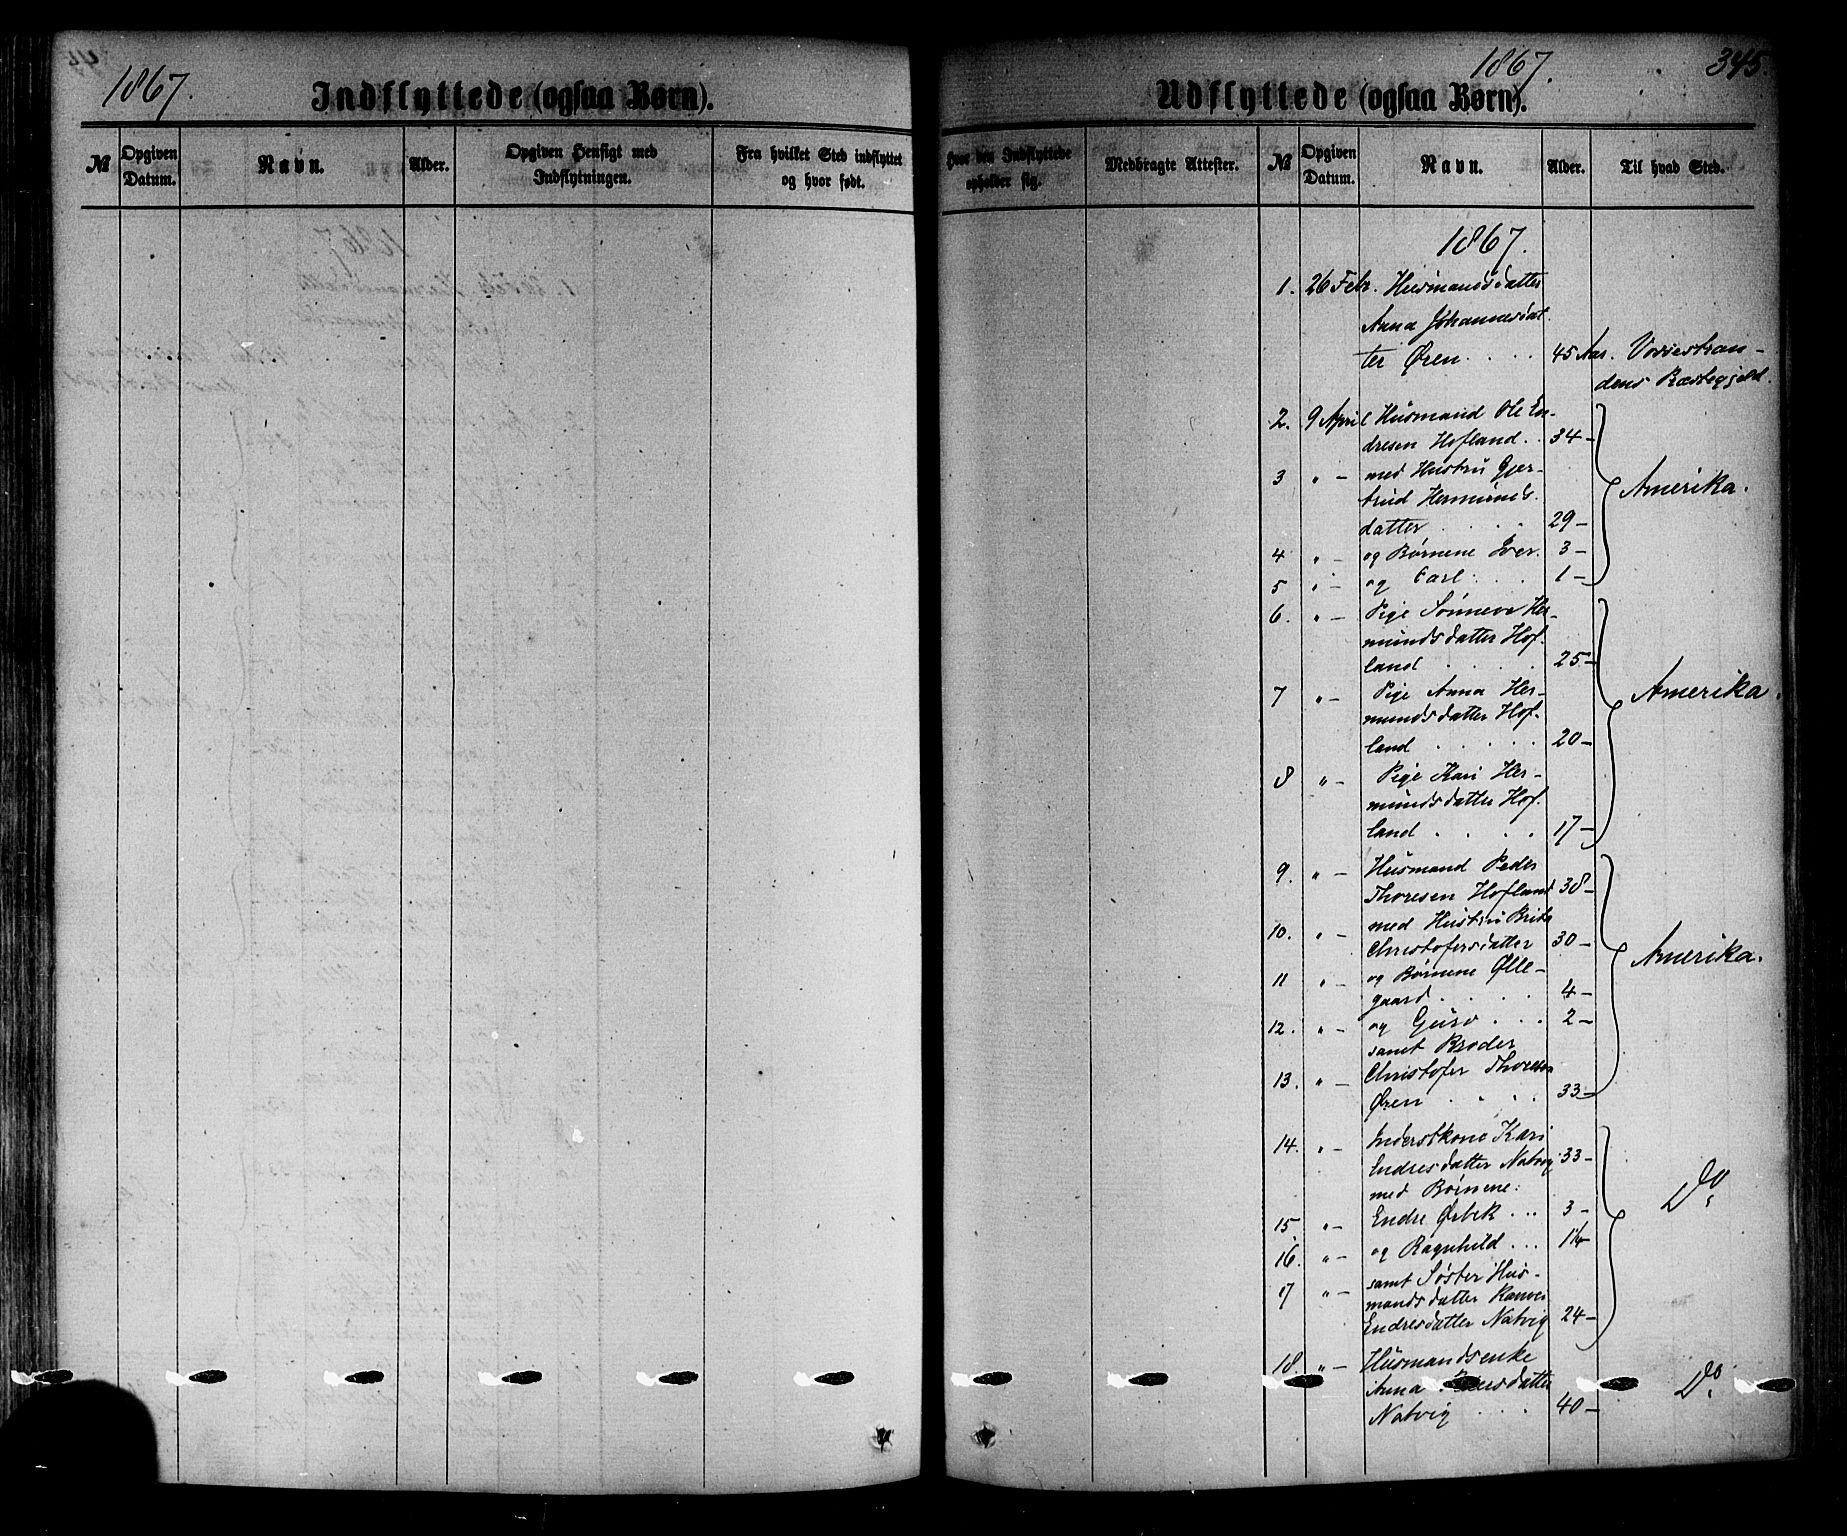 1867.
Indflyttede (ogsaa Børn).
№ Opgiven Datum. Navn. Alder. Opgiven Hensigt med Indflytningen. Fra hvilket Sted indflyttet og hvor født.
1867. 345.
Udflyttede (ogsaa Børn).
Hvor den Indflyttede opholder sig. Medbragte Attester. № Opgiven Datum. Navn. Alder. Til hvad Sted.
1867.
1. 26 Febr. Husmandsdatter
Anna Johannesdat
ter Øren . . . . 45 Aar. Vossestran-
dens Præstegjeld.
2. 9 April Husmand Ole En-
dresen Hofland . . 34 -
3 " - med Hustru Gjer-
trud Hermunds
datter . . . . 29 -
Amerika.
4 " - og Børnene Iver. 3 -
5 " - og Carl . . . 1 -
6. " - Pige Sønneva Her-
mundsdatter Hof-
land . . . . 25 -
7 " - Pige Anna Her-
mundsdatter Hof-
land . . . . . 20 -
Amerika.
8 " - Pige Kari Her-
mundsdatter Hof-
land . . . . 17 -
9. " - Husmand Peder
Thoresen Hofland 38 -
10. " - med Hustru Brita
Christofersdatter 30 -
Amerika.
11 " - og Børnene Ølle-
gaard . . . . 4 -
12. " - og Guro . . . 2 -
samt Broder
13. " - Christofer Thoresen
Øren . . . . 33 -
14. " - Inderstkone Kari
Endresdatter Natvig 33 -
med Børnene:
15 " - Endre Ørbek . . . 3 -
Do.
16. " - og Ragnhild . . . 1¼
17 " - samt Søster Hus-
mandsdatter
Endresdatter Natvig 24 -
18. " - Husmandsenke
Anna
Natvig . . . . 40 -
Do.